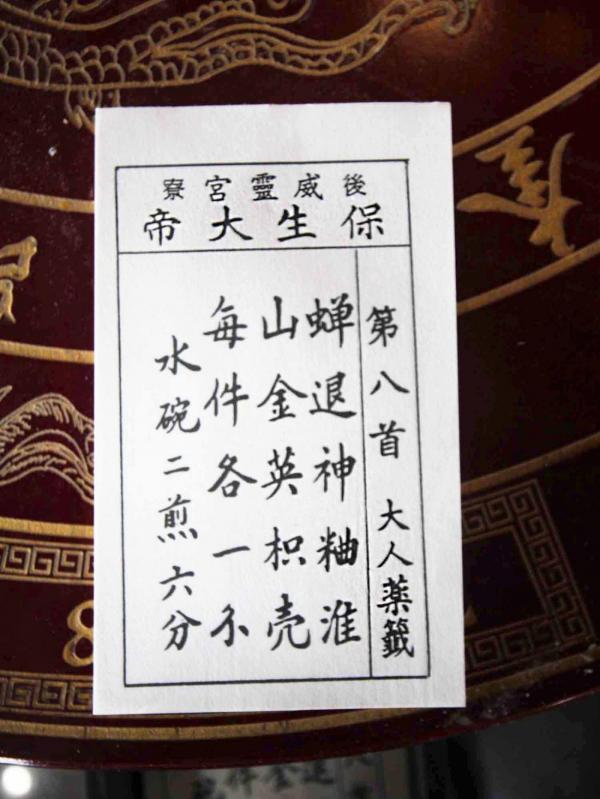 後威靈宮寮
保生大帝
第八首 大人薬籤
蝉退神粬淮
山金英枳壳
每件各一
水碗二煎六分
8